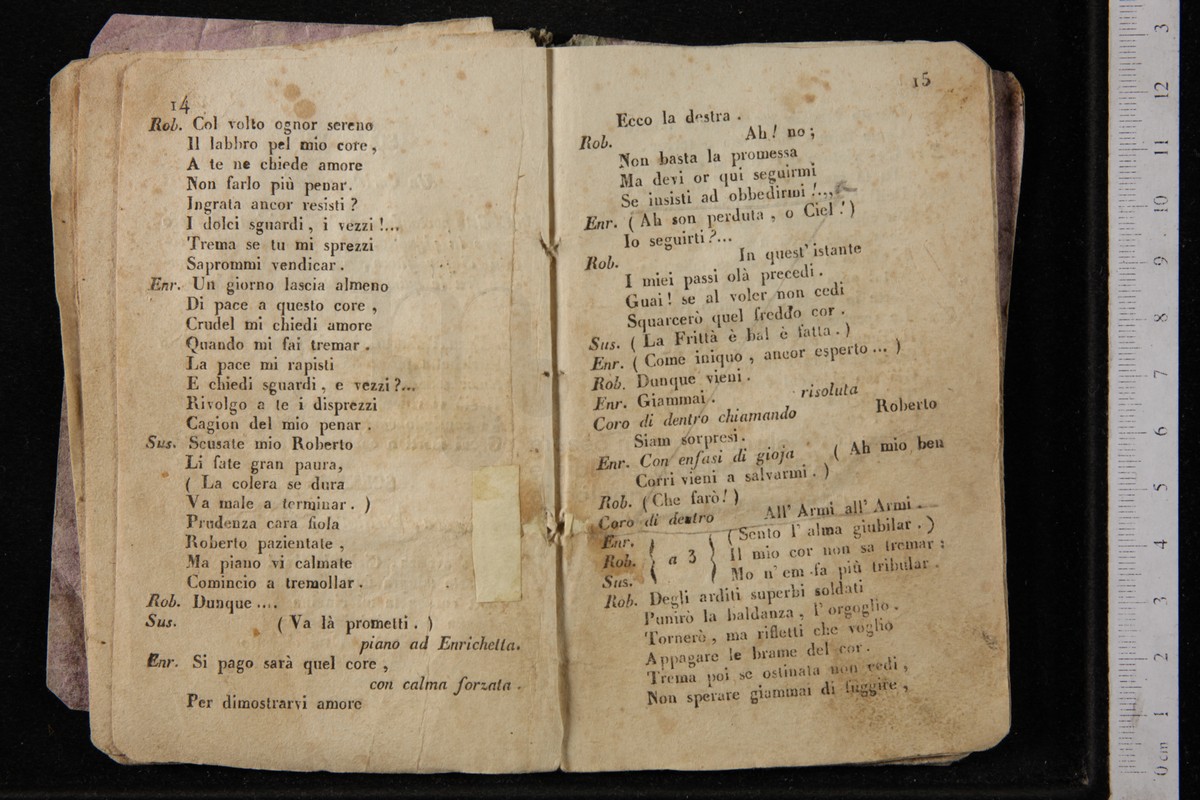 14
Rob. Col volto ognor sereno
Il labbro pel mio core,
A te ne chiede amore
Non farlo più penar.
Ingrata ancor resisti?
I dolci sguardi, i vezzi!...
Trema se tu mi sprezzi
Saprommi vendicar.
Enr. Un giorno lascia almeno
Di pace a questo core,
Crudel mi chiedi amore
Quando mi fai tremar.
La pace mi rapisti
E chiedi sguardi, e vezzi?...
Rivolgo a te i disprezzi
Cagion del mio penar.
Sus. Scusate mio Roberto
Li fate gran paura,
( La colera se dura
Va male a terminar. )
Prudenza cara fiola
Roberto pazientate,
Ma piano vi calmate
Comincio a tremollar.
Rob. Dunque....
Sus. ( Va là prometti. )
piano ad Enrichetta.
Enr. Si pago sarà quel core,
con calma forzata.
Per dimostrarvi amore
15
Ecco la destra.
Rob. Ah! no;
Non basta la promessa
Ma devi or qui seguirmi
Se insisti ad obbedirmi!...
Enr. ( Ah son perduta, o Ciel! )
Io seguirti?...
Rob. In quest' istante
I miei passi olà precedi.
Guai! se al voler non cedi
Squarcerò quel freddo cor.
Sus. ( La Frittà è bal è fatta. )
Enr. ( Come iniquo, ancor esperto... )
Rob. Dunque vieni.
Enr. Giammai. risoluta
Coro di dentro chiamando Roberto
Siam sorpresi.
Enr. Con enfasi di gioja ( Ah mio ben
Corri vieni a salvarmi. )
Rob. ( Che farò! )
Coro di dentro All' Armi all' Armi.
Enr. ( Sento l' alma giubilar. )
Rob. a 3 Il mio cor non sa tremar:
Sus. Mo n' em fa più tribular.
Rob. Degli arditi superbi soldati
Punirò la baldanza, l' orgoglio.
Tornerò, ma rifletti che voglio
Appagare le brame del cor.
Trema poi se ostinata non cedi,
Non sperare giammai di fuggire,
0 cm 1 2 3 4 5 6 7 8 9 10 11 12 3